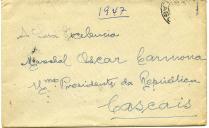 1947
A Sua Excelencia
Marechal Oscar Carmona
Presidente da República
Cascais